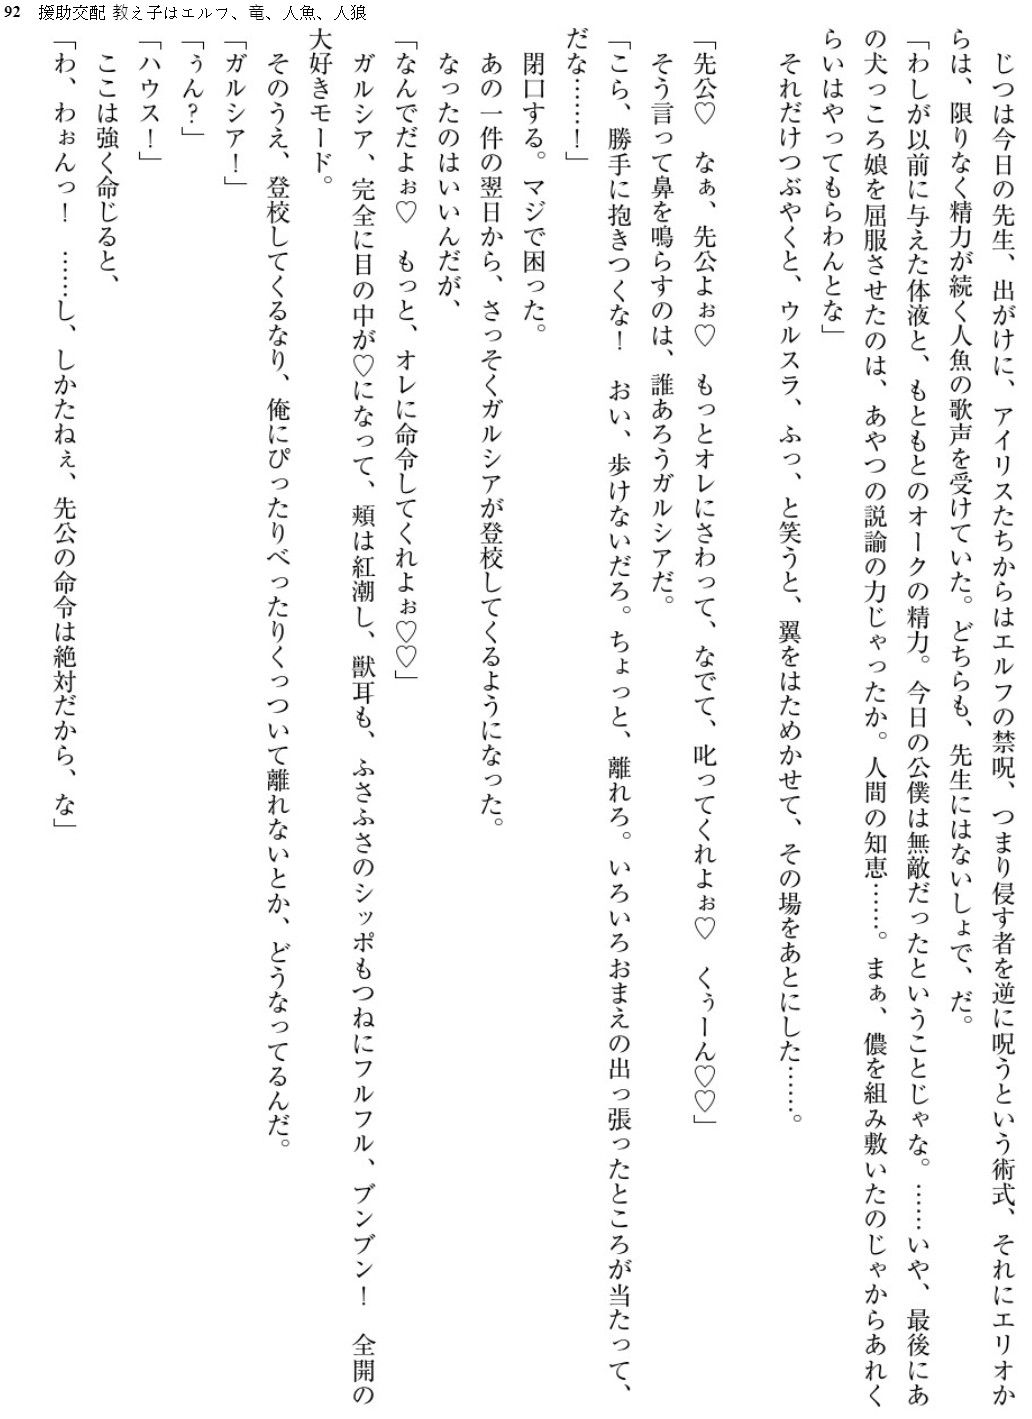 92 援助交配 教え子はエルフ、竜、人魚、人狼
　じつは今日の先生、出がけに、アイリスたちからはエルフの禁呪、つまり侵す者を逆に呪うという術式、それにエリオか
らは、限りなく精力が続く人魚の歌声を受けていた。どちらも、先生にはないしょで、だ。
「わしが以前に与えた体液と、もともとのオークの精力。今日の公僕は無敵だったということじゃな。……いや、最後にあ
の犬っころ娘を屈服させたのは、あやつの説諭の力じゃったか。人間の知恵……。まぁ、儂を組み敷いたのじゃからあれく
らいはやってもらわんとな」
　それだけつぶやくと、ウルスラ、ふっ、と笑うと、翼をはためかせて、その場をあとにした……。
「先公♡　なぁ、先公よぉ♡　もっとオレにさわって、なでて、叱ってくれよぉ♡　くぅーん♡♡」
　そう言って鼻を鳴らすのは、誰あろうガルシアだ。
「こら、勝手に抱きつくな！　おい、歩けないだろ。ちょっと、離れろ。いろいろおまえの出っ張ったところが当たって、
だな……！」
　閉口する。マジで困った。
　あの一件の翌日から、さっそくガルシアが登校してくるようになった。
　なったのはいいんだが、
「なんでだよぉ♡　もっと、オレに命令してくれよぉ♡♡」
　ガルシア、完全に目の中が♡になって、頬は紅潮し、獣耳も、ふさふさのシッポもつねにフルフル、ブンブン！　全開の
大好きモード。
　そのうえ、登校してくるなり、俺にぴったりべったりくっついて離れないとか、どうなってるんだ。
「ガルシア！」
「ぅん？」
「ハウス！」
　ここは強く命じると、
「わ、わぉんっ！　……し、しかたねぇ、先公の命令は絶対だから、な」